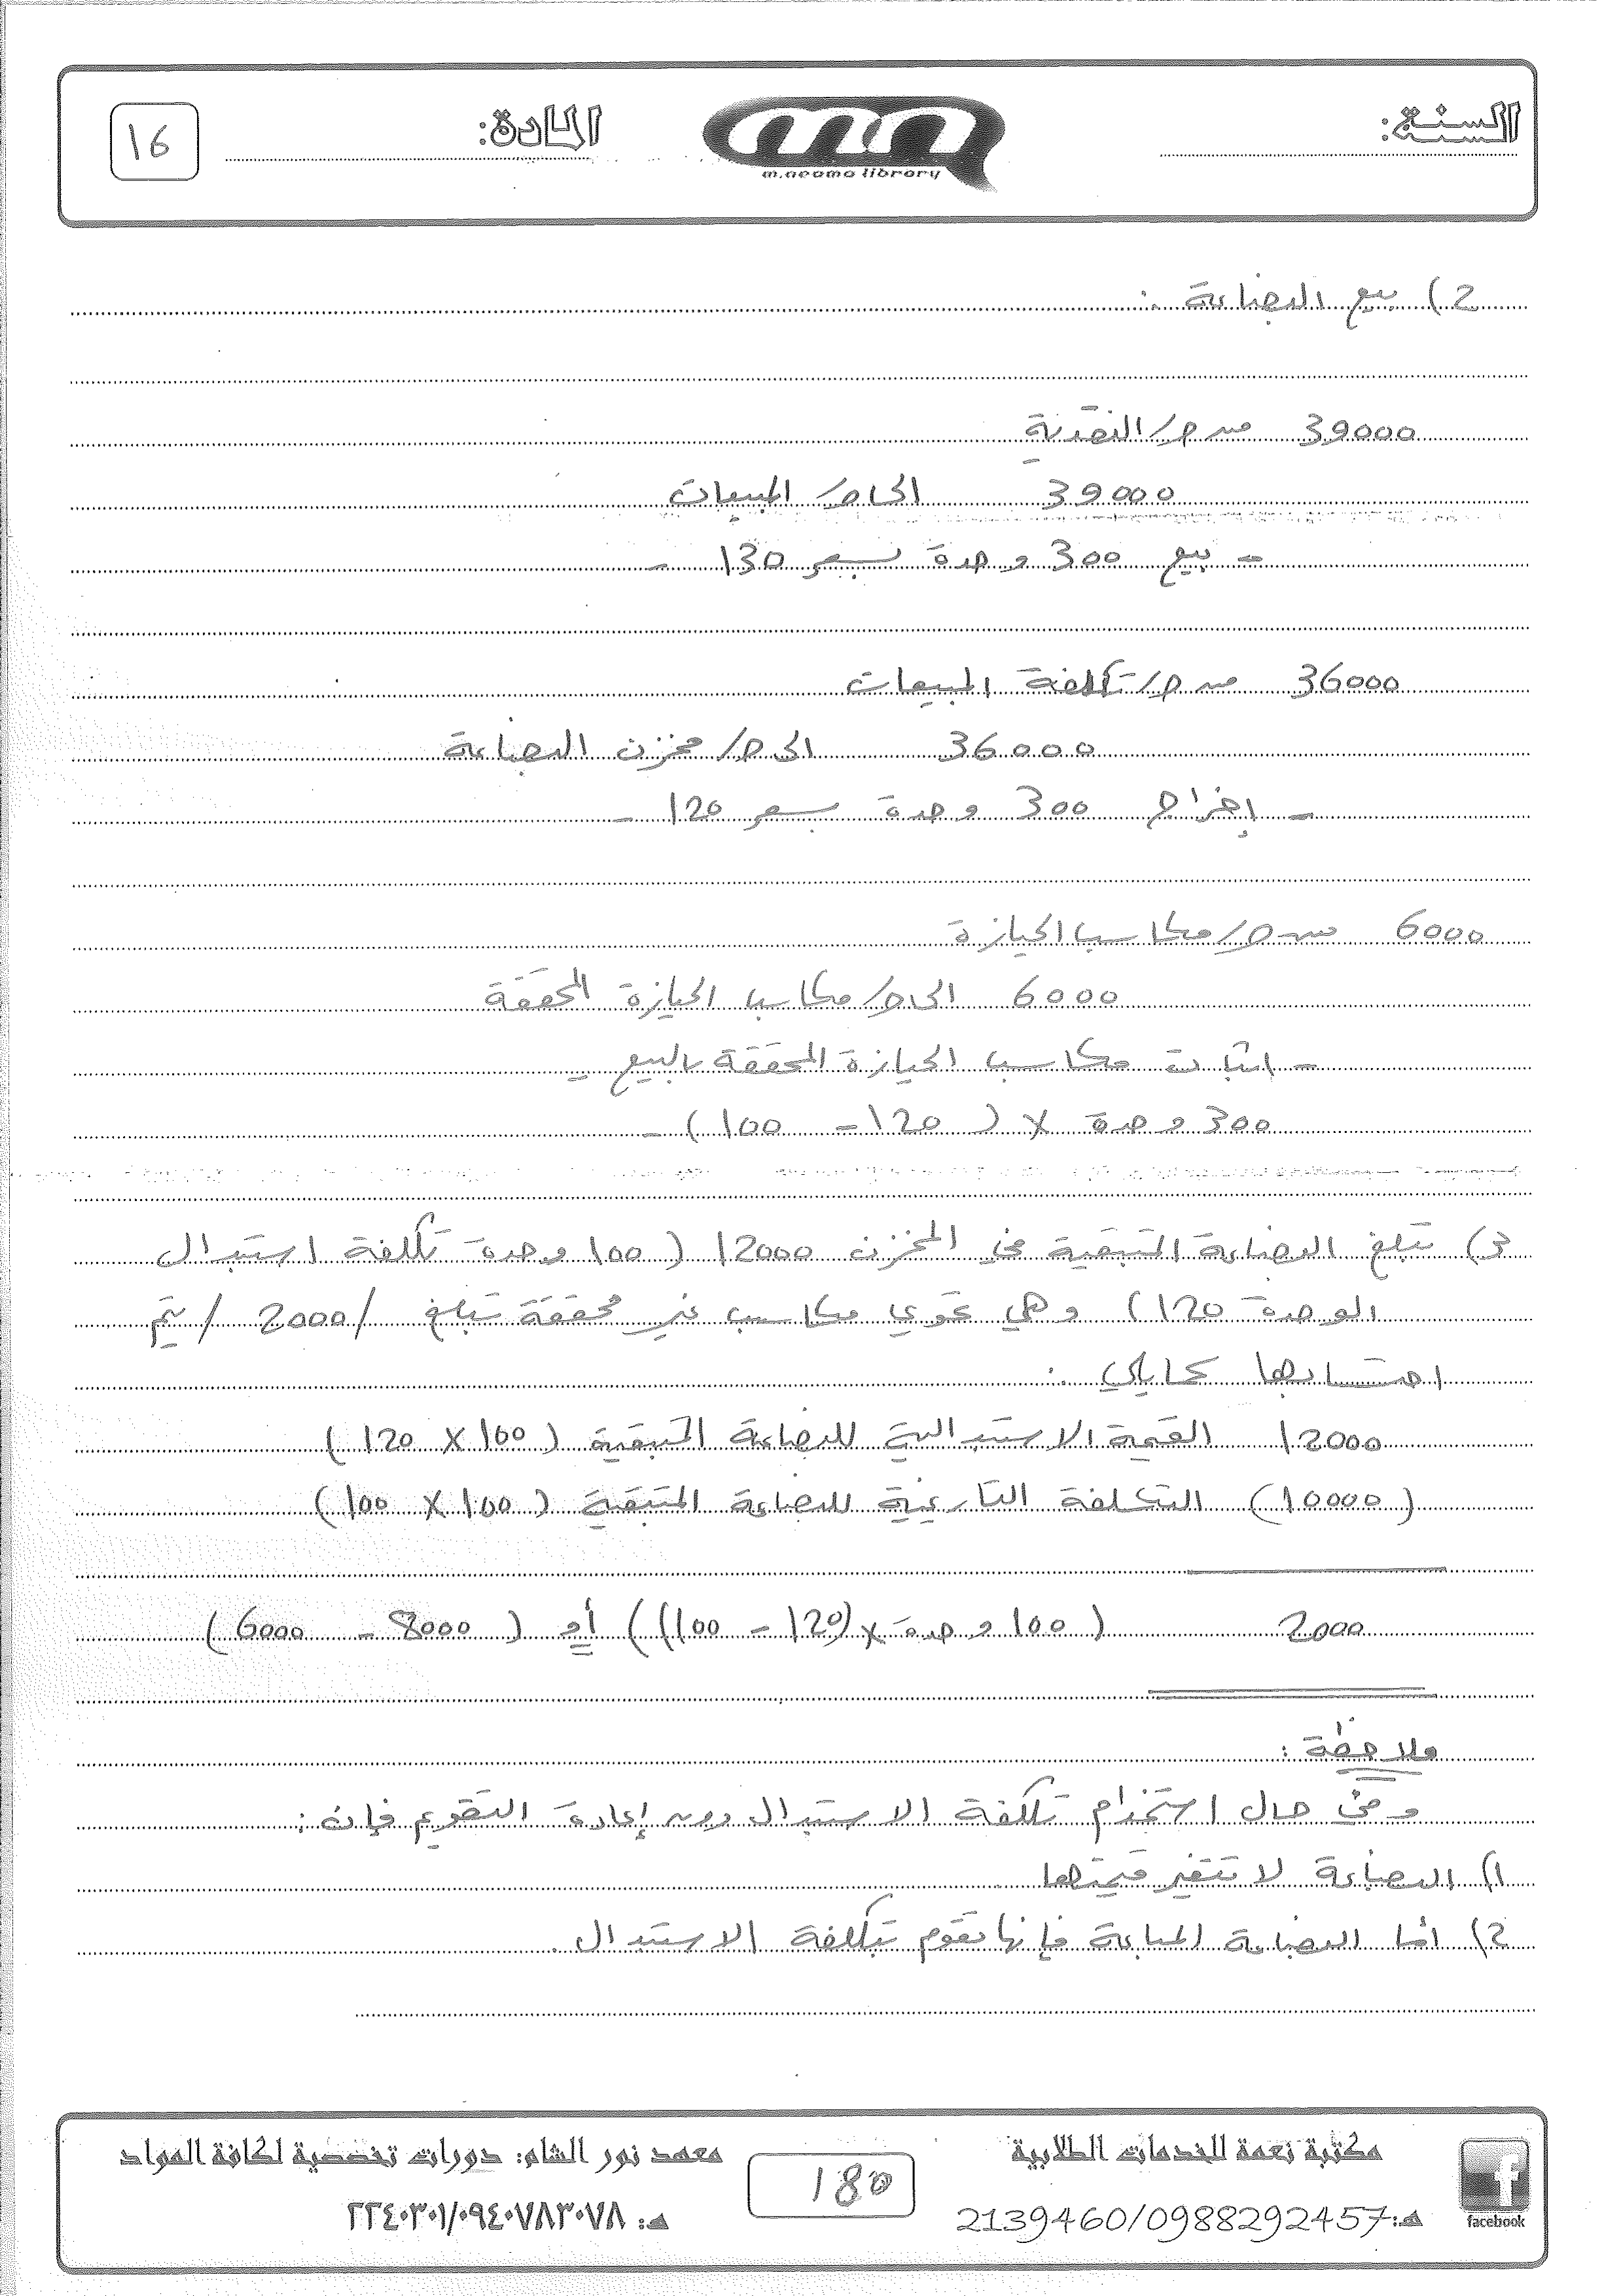 السنة:
المادة:
16
m.neama library
2) بيع البضاعة :
39000 من ح/ النقدية
39000 الى ح/ المبيعات
- بيع 300 وحدة بسعر 130 -
36000 من ح/ تكلفة المبيعات
36000 الى ح/ مخزن البضاعة
- إخراج 300 وحدة بسعر 120 -
6000 من ح/ مكاسب الحيازة
6000 الى ح/ مكاسب الحيازة المحققة
- اثبات مكاسب الحيازة المحققة بالبيع -
300 وحدة × ( 120 - 100 ) -
3) تبلغ البضاعة المتبقية في المخزن 12000 ( 100 وحدة تكلفة استبدال
الوحدة 120 ) وهي تحوي مكاسب غير محققة تبلغ /2000/ يتم
احتسابها كمايلي :
12000 القيمة الاستبدالية للبضاعة المتبقية ( 100 × 120 )
( 10000 ) التكلفة التاريخية للبضاعة المتبقية ( 100 × 100 )
2000 ( 100 وحدة × (120 - 100) ) أو ( 8000 - 6000 )
ملاحظة :
وفي حال استخدام تكلفة الاستبدال دون إعادة التقويم فإن :
1) البضاعة لا تتغير قيمتها
2) أما البضاعة المباعة فإنها تقوم بتكلفة الاستبدال .
مكتبة نعمة للخدمات الطلابية
هـ: 2139460/0988292457
facebook
180
معهد نور الشام: دورات تخصصية لكافة المواد
هـ: ٢٢٤٠٣٠١/٠٩٤٠٧٨٣٠٧٨